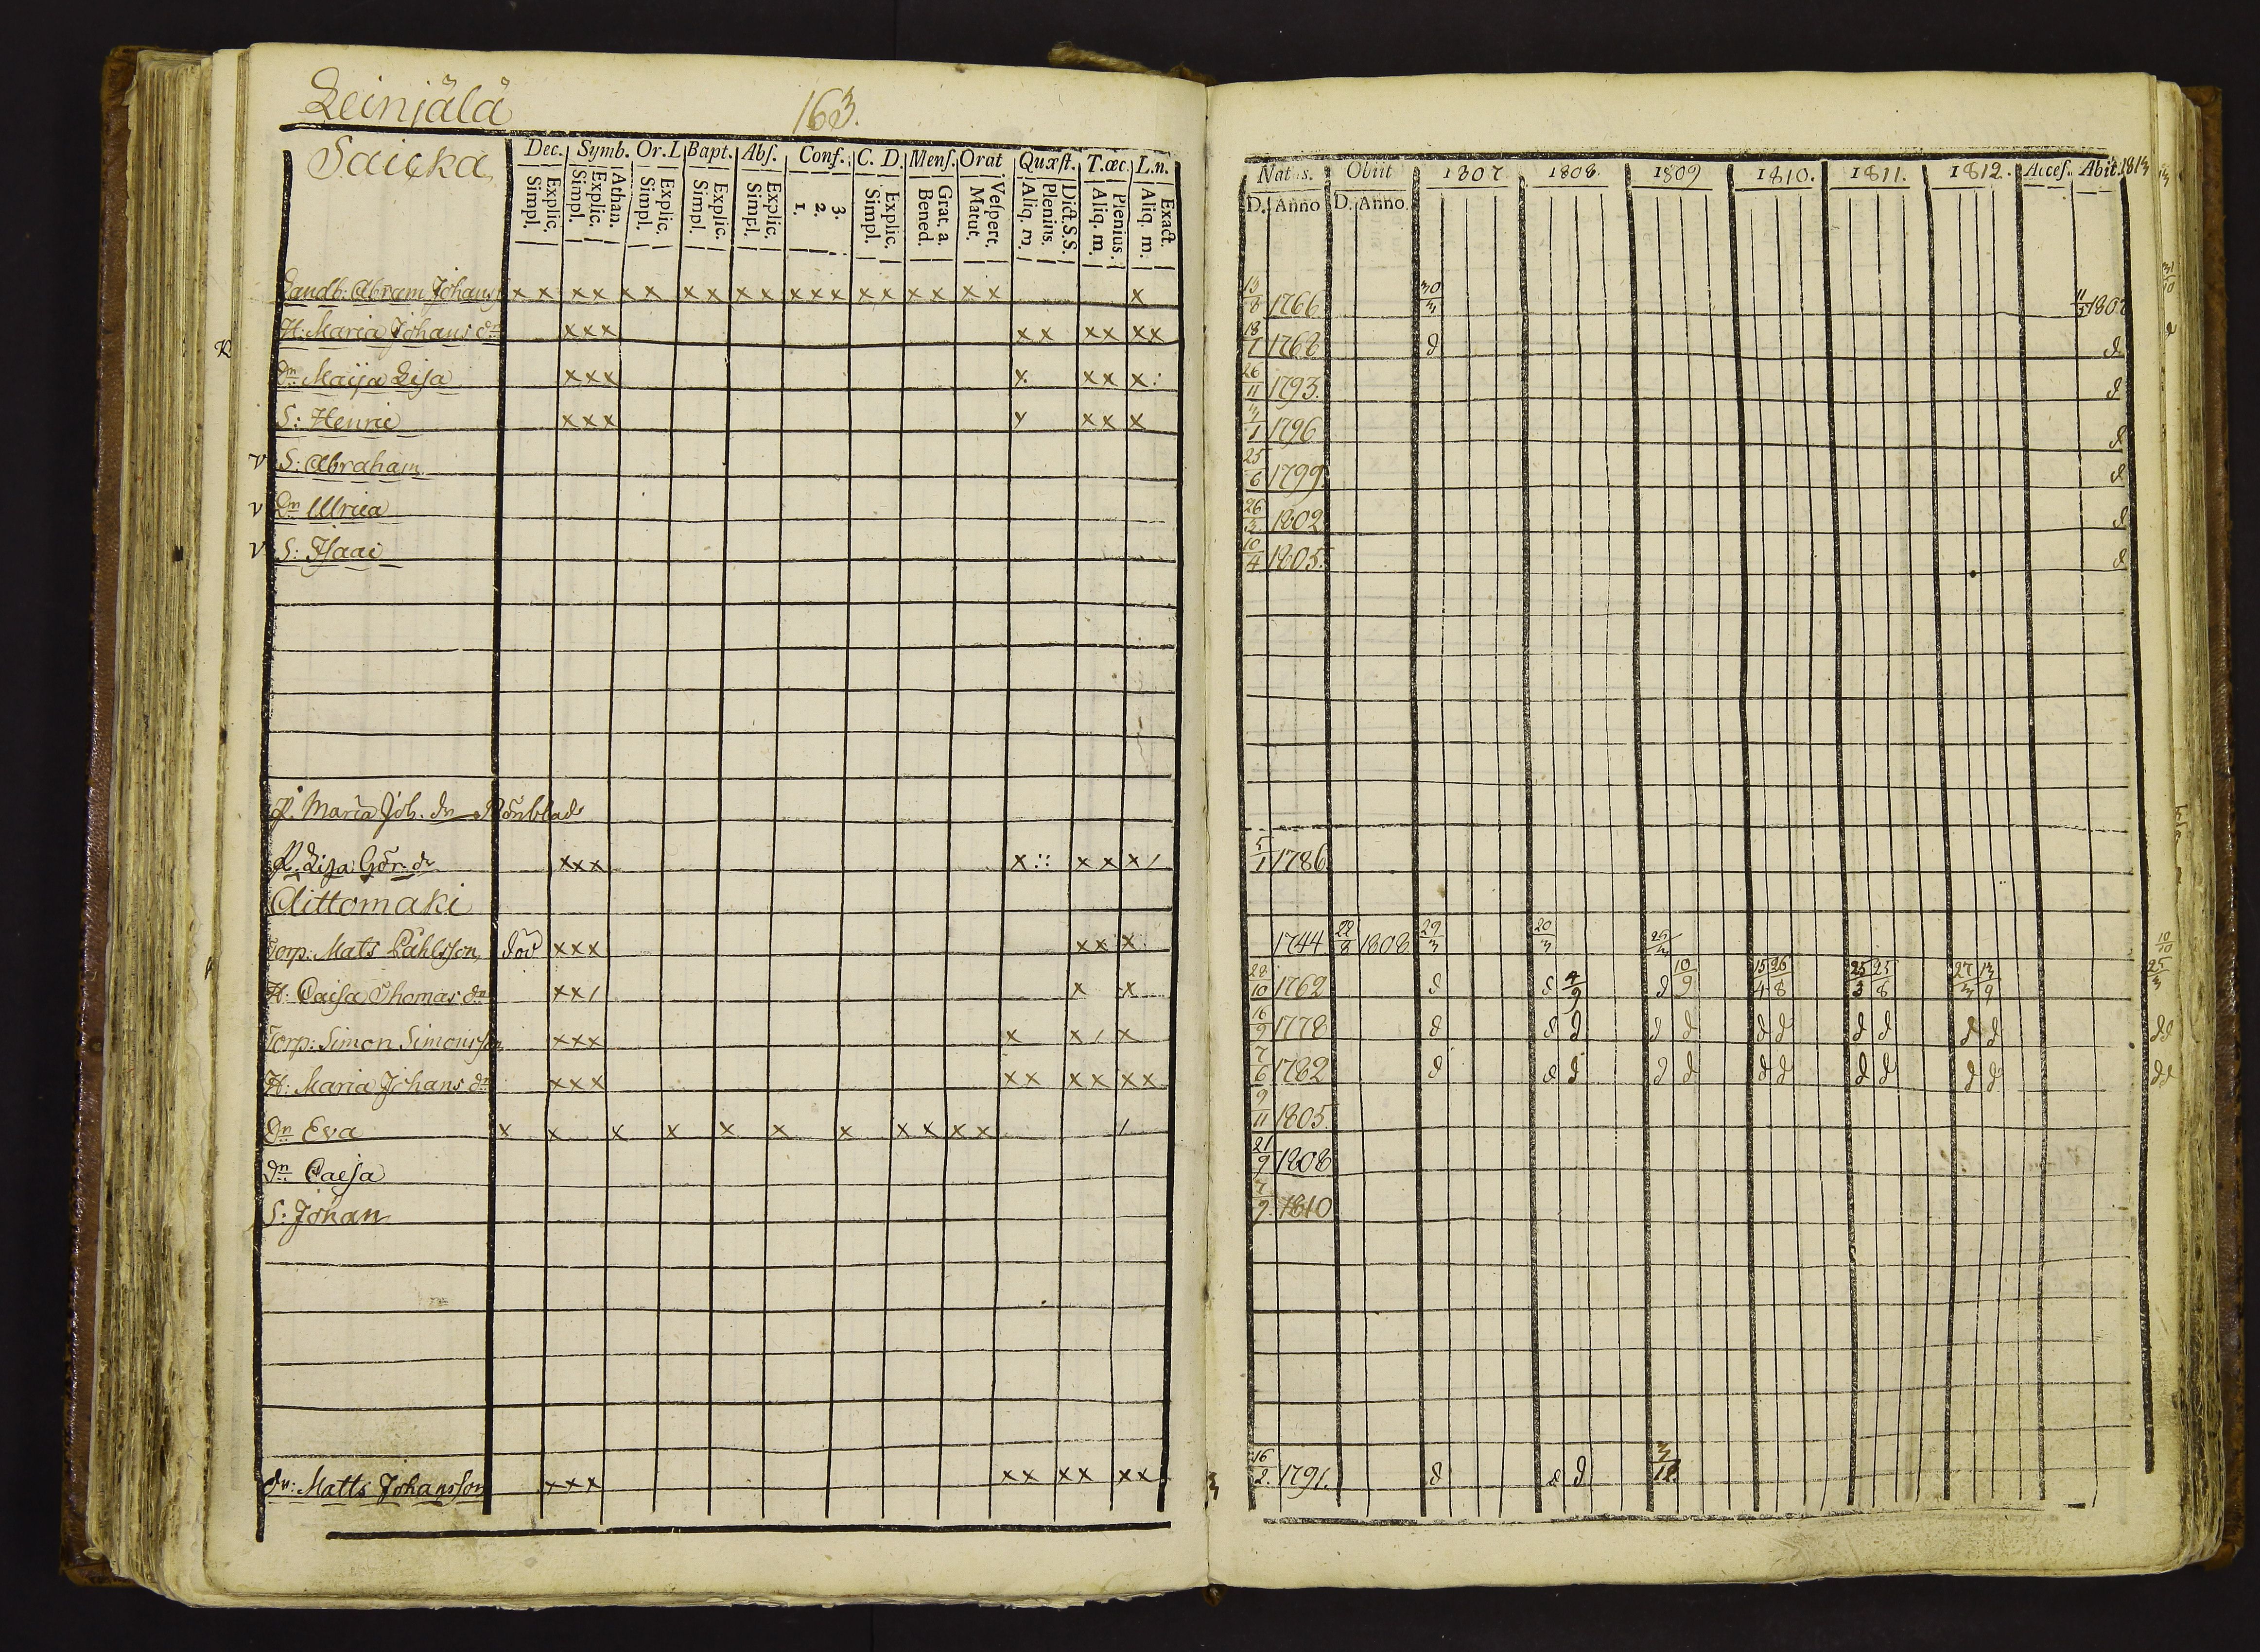 Leinjälä 163.
Saicka Dec. Symb. Or. L Bapt. Abſ. Conf. C. D. Menſ. Orat Quæſt. T. æc. L. n.
Explic. Simpl. Athan. Explic. Simpl. Explic. Simpl. Explic. Simpl. Explic. Simpl. 3. 2. 1. Explic. Simpl. Grat. a. Bened. Veſpert. Matut. Dict. S.S. Plenius. Aliq. m. Plenius. Aliq. m. Exact. Aliq. m.
Natus. Obiit 1807. 1808. 1809 1810. 1811. 1812. Acceſ. Abit. 1813
D. Anno D. Anno.
Landb: Abram Johanss x x x x x x x x x x x x x x x x x x x x 13/8 1766 30/3 1807
H: Maria Johans dr x x x x x x x x x 18/7 1768 d d
Dr Maija Lisa x x x x x x x 26/11 1793. d
S: Henric x x x x x x x 1796 d
v S: Abraham 25/6 1799. d
v Dr Ulrica 26/3 1802 d
v S: Isaac 10/4 1805. d
P. Maria Joh. dr Rönblad
P. Lisa Gör. dr x x x x :: x x x / 5/1 1786
Aittomaki
Torp: Mats Påhlsson, död x x x x x x 1744 22/8 1808 29/3 20/3 10/10
H: Caisa Thomas dr x x / x x 28/10 1762 d d 4/9 d 10/9 15/4 26/8 25/3 25/8 27/3 13/9 25/3
Torp: Simon Simonsson x x x x x / x 16/9 1778 d d d d d d d d d d d d d
H: Maria Johans dr x x x x x x x x x 7/6 1782 d d d d d d d d d d d d d
Dr Eva x x x x x x x x x x x / 9/11 1805.
Dr Caisa 21/9 1808
S: Johan 7/9 1810
dr: Matts Johansson x x x x x x x x x 16/2 1791. d d d